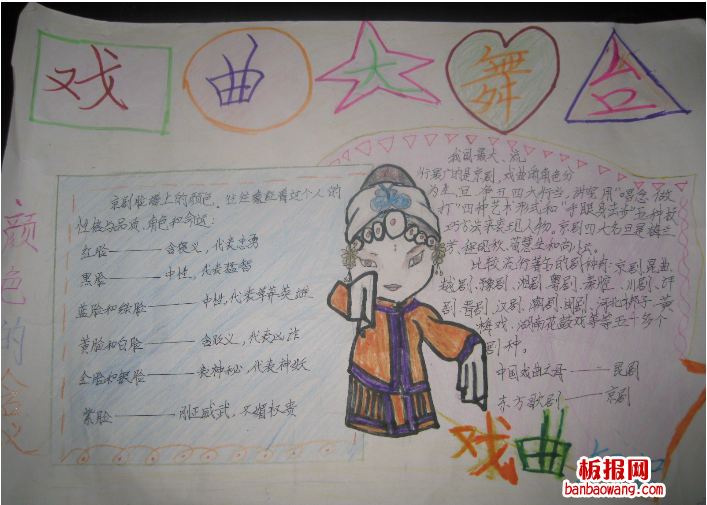 戏曲大舞台
颜色的含义
京剧脸谱上的颜色,丝丝索联着这个人的
性格与品质、角色和命运:
红脸——含褒义,代表忠勇
黑脸——中性,代表猛智
蓝脸和绿脸——中性,代表草莽英雄
黄脸和白脸——含贬义,代表凶诈
金脸和银脸——表神秘,代表神妖
紫脸——刚正威武,不媚权贵
我国最大、流
行最广的是京剧,戏曲的角色分
为生、旦、净、丑四大行当,讲究用"唱念做
打"四种艺术形式和"手眼身法步"五种技
巧方法来表现人物,京剧四大名旦是梅兰
芳、程砚秋、荀慧生和尚小云。
比较流行著名的剧种有:京剧、昆曲、
越剧、豫剧、湘剧、粤剧、秦腔、川剧、评
剧、晋剧、汉剧、潮剧、闽剧、河北梆子、黄
梅戏、湖南花鼓戏等等五十多个
剧种。
中国戏曲之母——昆剧
东方歌剧——京剧
戏曲
板报网
banbaowang.com